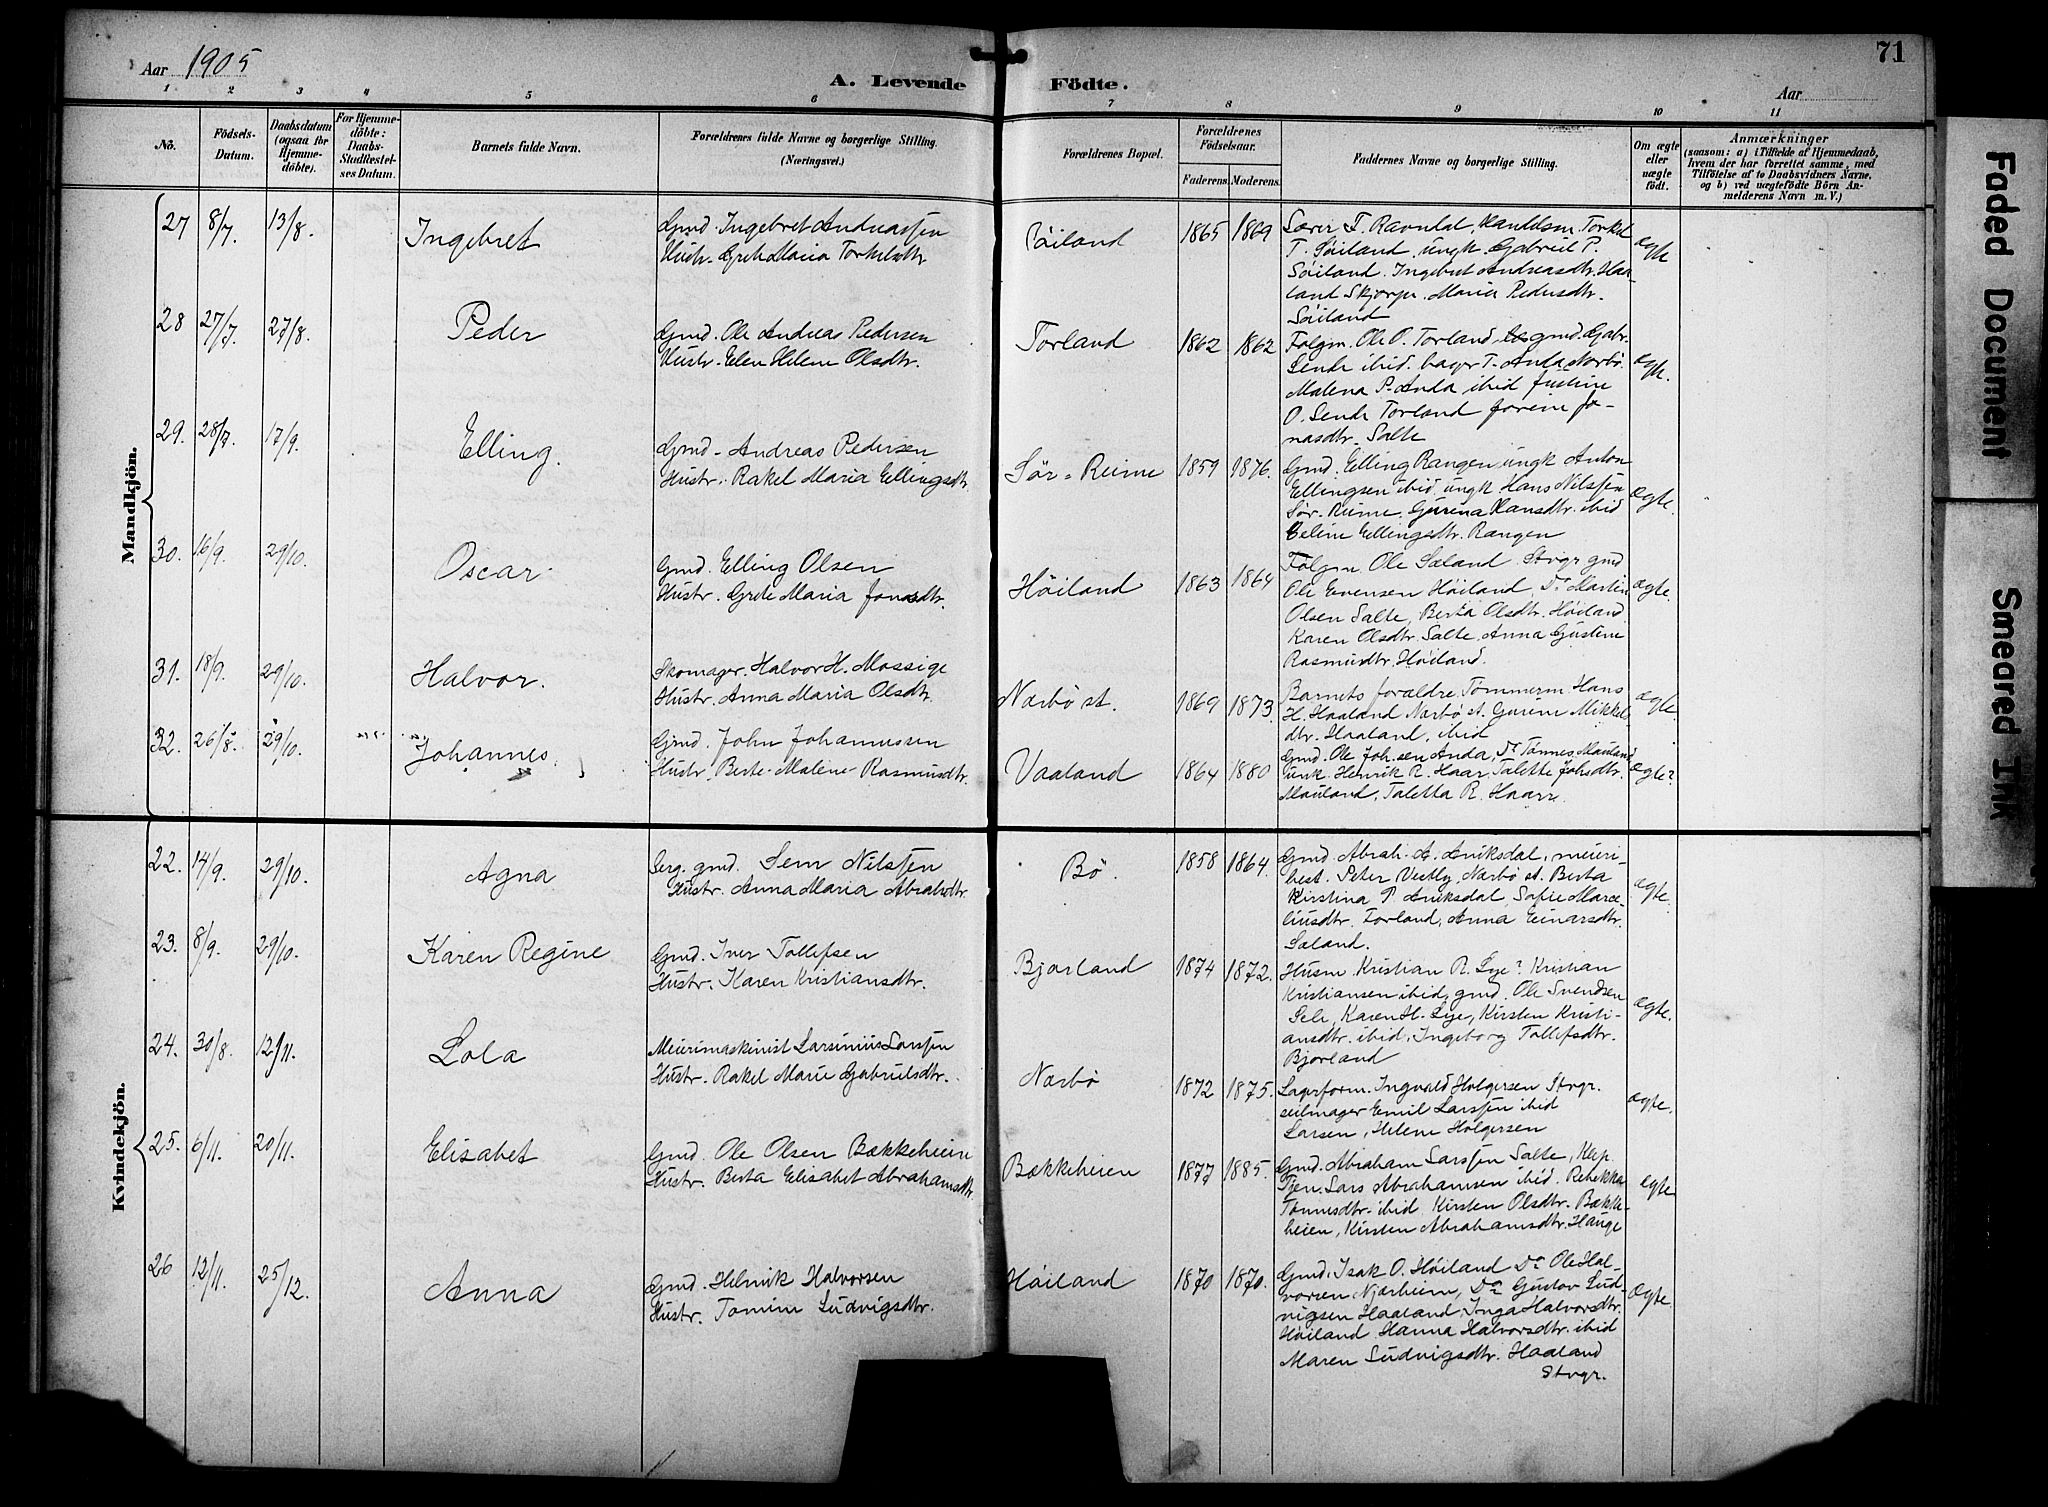 Aar 1905
A. Levende Födte.
Aar
71
1 2 3 4 5 6 7 8 9 10 11
No.
Födsels-Datum.
Daabsdatum (ogsaa for Hjemmedöbte).
For Hjemmedöbte: Daabs-Stadfæstelses Datum.
Barnets fulde Navn.
Forældrenes fulde Navne og borgerlige Stilling. (Næringsvei.)
Forældrenes Bopæl.
Forældrenes Födselsaar.
Faderens. Moderens.
Faddernes Navne og borgerlige Stilling.
Om ægte eller uægte födt.
Anmærkninger
(saasom: a) i Tilfælde af Hjemmedaab,
hvem der har forrettet samme, med
Tilföielse af to Daabsvidners Navne,
og b) ved uægtefödte Börn An-
melderens Navn m. V.)
Mandkjön.
27 8/7. 13/8. Ingebret
Gmd. Ingebret Andreassen
Hustr. Grete Maria Torkelsdtr
Söiland 1865 1869
Lærer T. Ravndal, Handelsm. Torkel
T. Söiland, ungk. Gabriel P.
Söiland. Ingebret Andreasdtr. Haa-
land Skjorpe. Maria Pedersdtr.
Söiland
ægte
28 27/7. 27/8. Peder
Gmd. Ole Andreas Pedersen
Hustr. Elen Helene Olsdtr.
Torland 1862 1862
Folgm. Ole O. Torland, gmd. Gabr.
Sende ibid. bager T. Anda Nærbö.
Malena P. Anda ibid Justine
O. Sende Torland Jorine Jo-
nasdtr. Salte
ægte.
29. 28/7. 17/9. Elling.
Gmd. Andreas Pedersen
Hustr. Rakel Maria Ellingsdtr.
Sør-Reime 1859 1876.
Gmd. Elling Rangen, ungk Anton
Ellingsen ibid, ungk. Hans Nilssen
Sør-Reime, Gurina Hansdtr. ibid
Eeline Ellingsdtr. Rangen
ægte.
30. 16/9. 29/10. Oscar
Gmd. Elling Olsen
Hustr. Grete Maria Jonasdtr.
Höiland 1863 1864
Folgm. Ole Saland Stvgr gmd
Ole Evensen Höiland, Do Martin
Olsen Salte, Berta Olsdtr. Höiland
Karen Olsdtr. Salte, Anna Gustene
Rasmusdtr. Höiland.
ægte.
31. 18/9. 29/10. Halvor.
Skomager. Halvor H. Mossige
Hustr. Anna Maria Olsdtr.
Nærbö st. 1869 1873.
Barnets forældre. Tömmerm. Hans
H. Haaland Nærbö st. Gurine Mikkels
dtr. Haaland, ibid
ægte.
32. 26/8. 29/10. Johannes.
Gmd. John Johannessen
Hustr. Berte Malene Rasmusdtr.
Vaaland 1864 1880
Gmd. Ole Johnsen Anda, Do Tönnes Mauland
unk. Henrik R. Haar, Talette Johsdtr.
Mauland, Taletta R. Haarr.
ægte?
Kvindekjön.
22. 14/9. 29/10. Agna
Serg. gmd. Sem Nilssen
Hustr. Anna Maria Abrahdtr.
Bö. 1858 1864.
Gmd. Abrah. A. Aniksdal, meieri-
best. Peter Vestly, Nærbö st. Berta
Kirstina P. Aniksdal, Sofie Marce-
liusdtr. Torland, Anna Einarsdtr.
Saland.
ægte.
23. 8/9. 29/10. Karen Regine
Gmd. Iver Tollefsen
Hustr. Karen Kristiansdtr.
Bjorland 1874 1872.
Husm. Kristian R. Lye? Kristian
Kristiansen ibid, gmd. Ole Svendsen
Sele, Karen H. Lye, Kirsten Kristi-
ansdtr. ibid, Ingeborg Tollefsdtr.
Bjorland
ægte.
24. 30/8. 12/11. Lola
Meierimaskinist Larsinius Larssen
Hustr. Rakel Marie Gabrielsdtr.
Nærbö 1872 1875.
Lagerform. Ingvald Holgersen Stvgr.
seilmager Emil Larssen ibid
Larsen, Helene Holgersen
ægte.
25. 6/11. 20/11. Elisabet
Gmd. Ole Olsen Bækkeheien
Hustr. Berta Elisabet Abrahamsdtr.
Bækkeheien 1877 1885.
Gmd. Abraham Larssen Salte, Klep.
Tjen. Lars Abrahamsen ibid. Rebekka
Tönnisdtr. ibid Kirsten Olsdtr. Bække-
heien, Kirsten Abrahamsdtr. Hauge
ægte
26 12/11. 25/12. Anna
Gmd. Helmik Halvorsen
Hustr. Tomine Ludvigsdtr.
Höiland 1870 1870.
Gmd. Isak O. Höiland Do Ole Hal-
vorsen Njærheim, Do Gustav Lud-
vigsen Haaland, Inga Halvorsdtr.
Höiland. Hanna Halvorsdtr. ibid
Maren Ludvigsdtr. Haaland
Stvgr.
ægte.
Faded Document
Smeared Ink